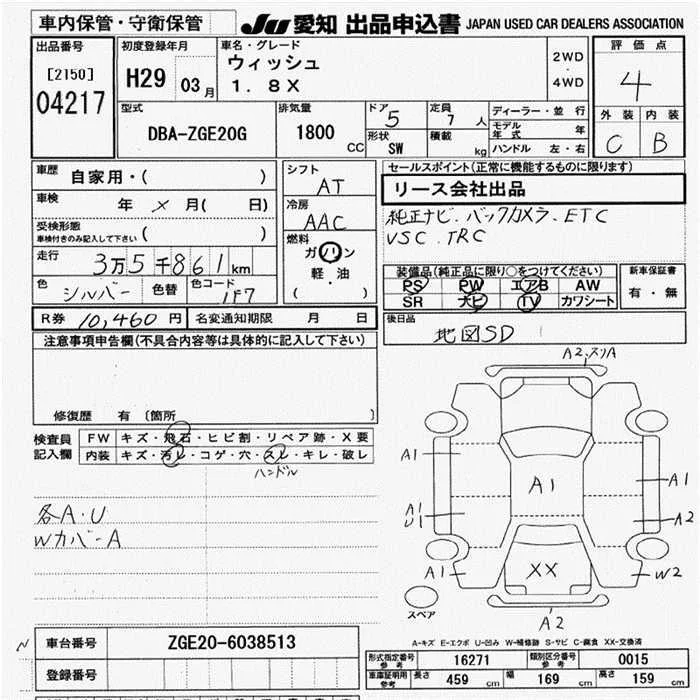 車内保管・守衛保管
JU 愛知 出品申込書 JAPAN USED CAR DEALERS ASSOCIATION
出品番号
[2150]
04217
初度登録年月
H29 03月
車名・グレード
ウィッシュ
1.8X
2WD
・
4WD
評価点
4
外装 内装
C B
型式
DBA-ZGE20G
排気量
1800 CC
ドア
5
形状
SW
定員
7 人
積載
kg
ディーラー・並行
モデル年式 年
ハンドル 左・右
車歴
自家用・( )
車検
年 × 月( 日)
受検形態
車検付きのみ記入して下さい ( )
走行
3万5千861km
色
シルバー
色替
色コード
1F7
シフト
AT
冷房
AAC
燃料
ガソリン
軽・油
( )
セールスポイント(正常に機能するものに限ります)
リース会社出品
純正ナビ.バックカメラ.ETC
VSC.TRC
装備品(純正品に限り○をつけてください)
PS PW エアB AW
SR ナビ TV カワシート
新車保証書
有・無
後日品
地図SD
R券 10,460 円 名変通知期限 月 日
注意事項申告欄(不具合内容等は具体的に記入して下さい)
修復歴 有 〔箇所 〕
検査員
記入欄
FW キズ・飛石・ヒビ割・リペア跡・X要
内装 キズ・汚レ・コゲ・穴・スレ・キレ・破レ
ハンドル
各A.U
WカバーA
A2.スリA
A1
A1
A1
A1
U1
A2
A1
XX
W2
スペア
A2
A-キズ E-エクボ U-凹み W-補修跡 S-サビ C-腐食 XX-交換済
N
車台番号 ZGE20-6038513
登録番号
型式指定番号
参考
16271
類別区分番号
参考
0015
車庫証明用
参考
長さ 459 cm 幅 169 cm 高さ 159 cm